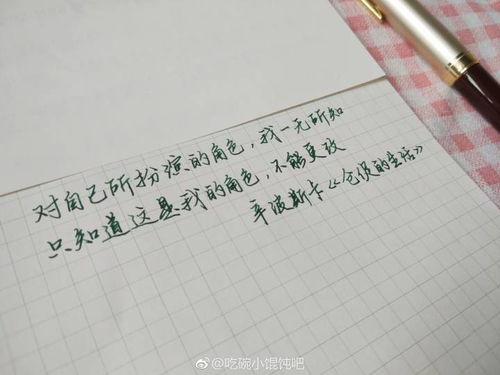 对自己所扮演的角色，我一无所知
只知道这是我的角色，不能更改
辛波斯卡《仓促的生活》
@吃碗小馄饨吧